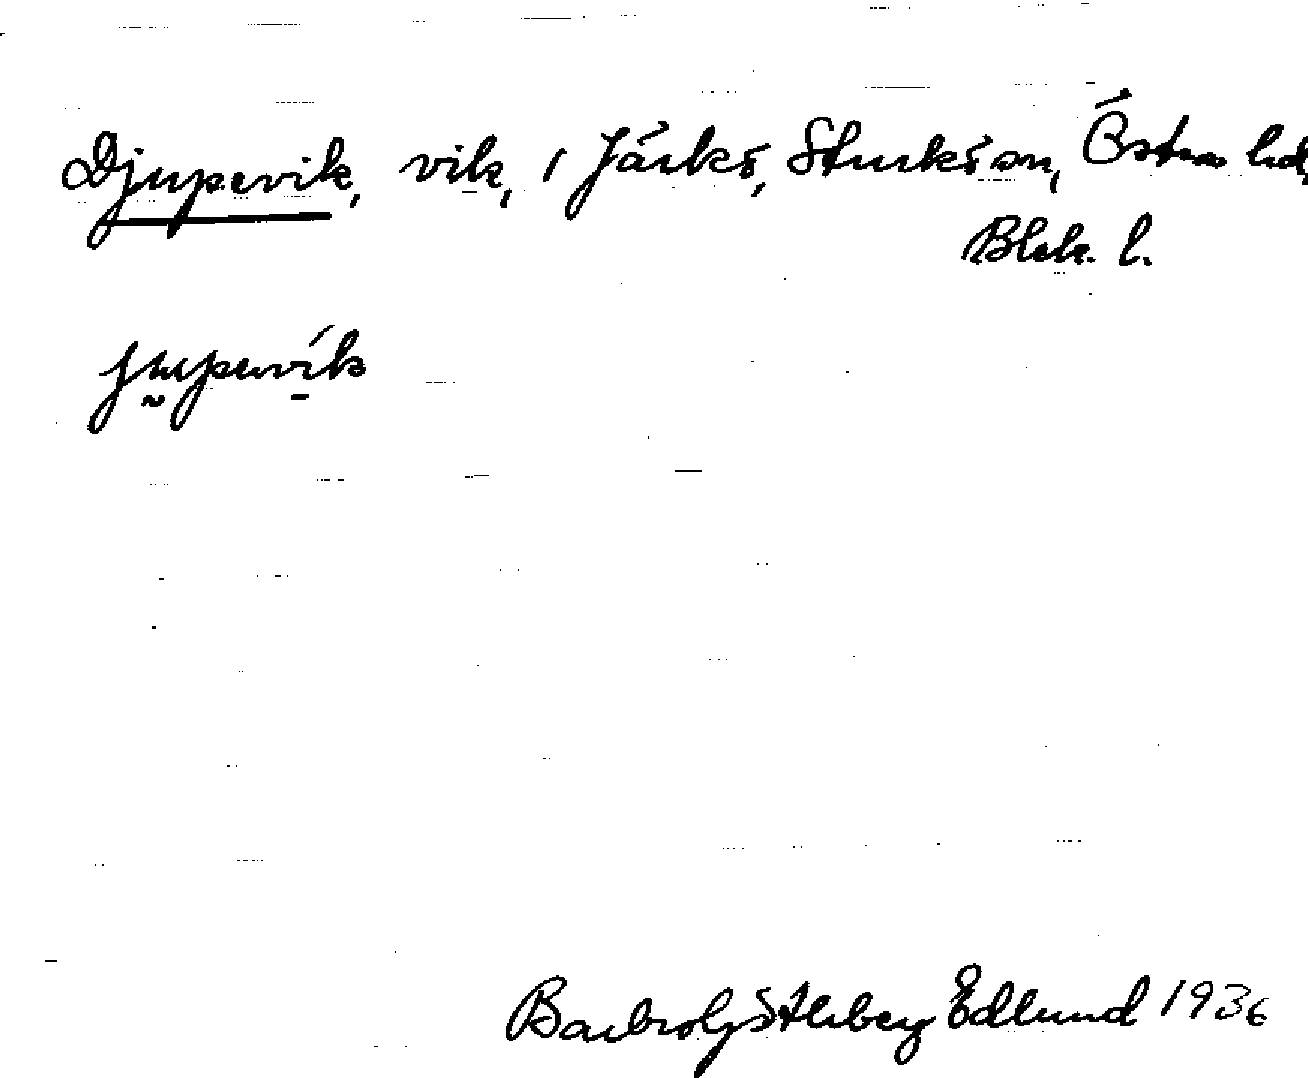 Djupevik, vik, i Järkö, Sturkö sn, Östra hd,
Blek. l.
jupevik
Barbro Söderberg Edlund 1936